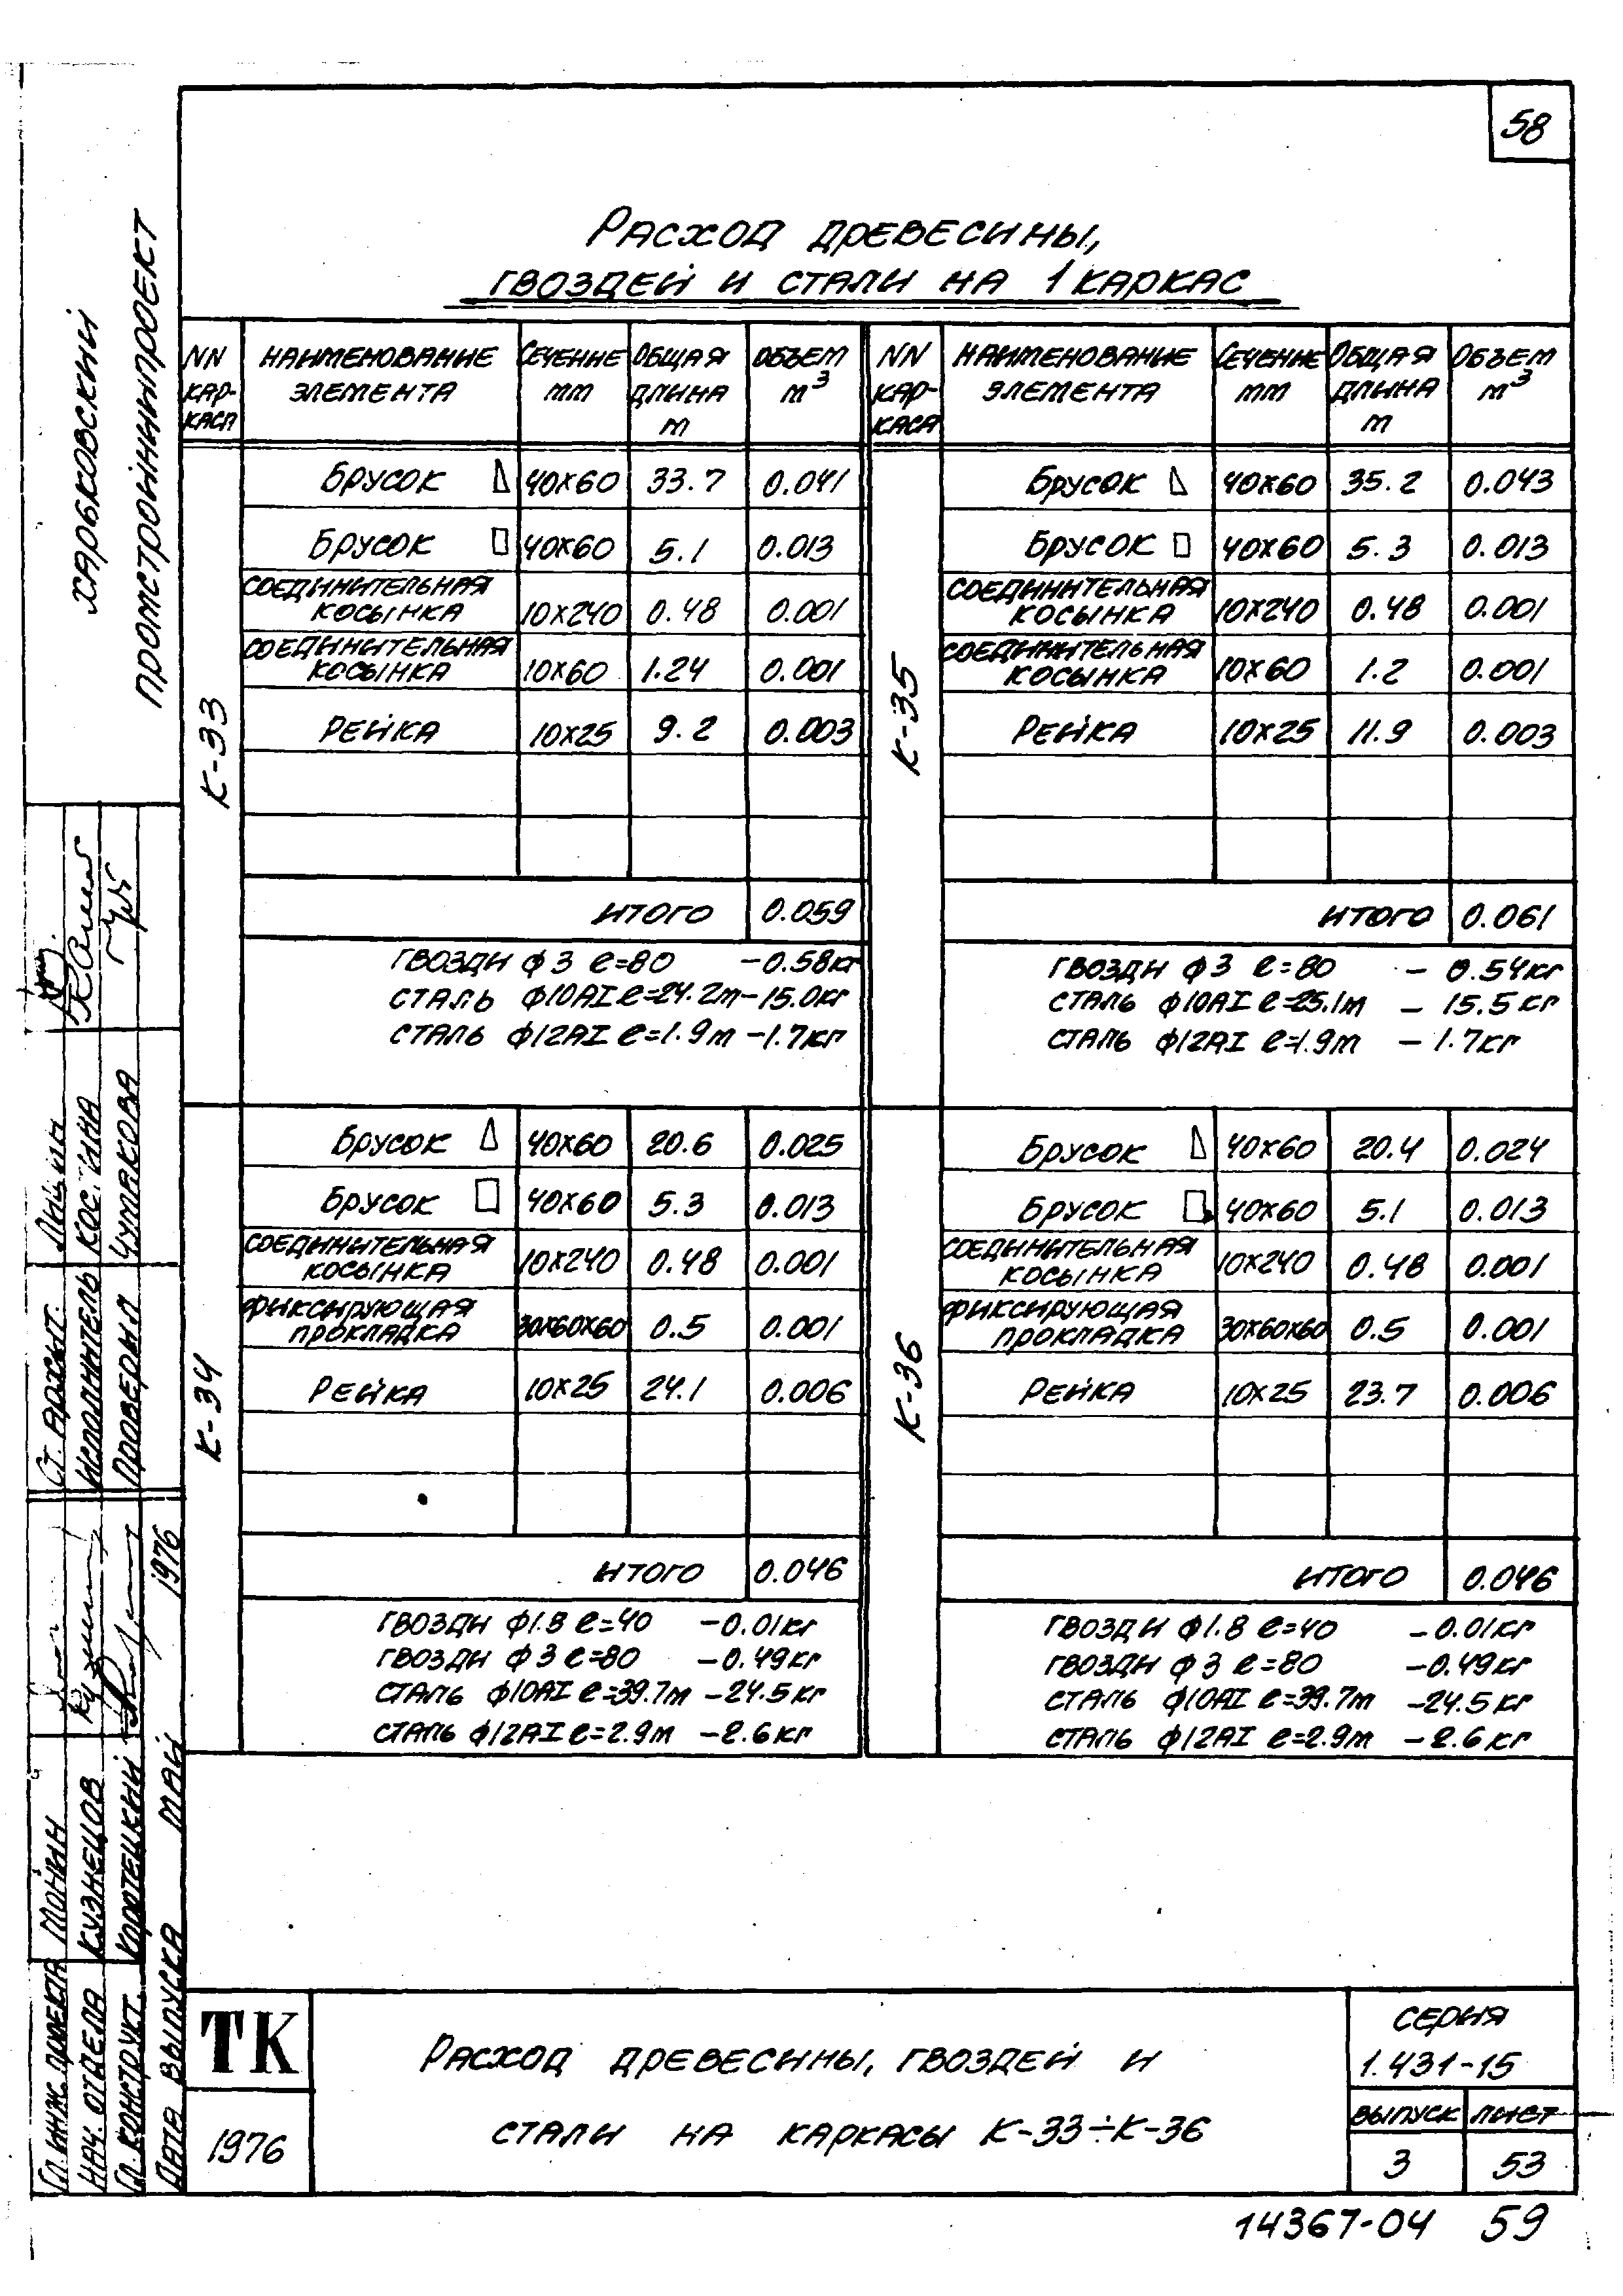 58
Расход древесины,
гвоздей и стали на 1 каркас
NN каркаса | Наименование элемента | Сечение mm | Общая длина m | Объем m³
К-33
Брусок 40x60 33.7 0.041
Брусок 40x60 5.1 0.013
Соединительная косынка 10x240 0.48 0.001
Соединительная косынка 10x60 1.24 0.001
Рейка 10x25 9.2 0.003
Итого 0.059
Гвозди ф3 l=80 -0.58кг
Сталь ф10АI l=24.2m -15.0кг
Сталь ф12АI l=1.9m -1.7кг
К-34
Брусок 40x60 20.6 0.025
Брусок 40x60 5.3 0.013
Соединительная косынка 10x240 0.48 0.001
Фиксирующая прокладка 30x60x60 0.5 0.001
Рейка 10x25 24.1 0.006
Итого 0.046
Гвозди ф1.8 l=40 -0.01кг
Гвозди ф3 l=80 -0.49кг
Сталь ф10АI l=39.7m -24.5кг
Сталь ф12АI l=2.9m -2.6кг
NN каркаса | Наименование элемента | Сечение mm | Общая длина m | Объем m³
К-35
Брусок 40x60 35.2 0.043
Брусок 40x60 5.3 0.013
Соединительная косынка 10x240 0.48 0.001
Соединительная косынка 10x60 1.2 0.001
Рейка 10x25 11.9 0.003
Итого 0.061
Гвозди ф3 l=80 - 0.54кг
Сталь ф10АI l=25.1m - 15.5кг
Сталь ф12АI l=1.9m - 1.7кг
К-36
Брусок 40x60 20.4 0.024
Брусок 40x60 5.1 0.013
Соединительная косынка 10x240 0.48 0.001
Фиксирующая прокладка 30x60x60 0.5 0.001
Рейка 10x25 23.7 0.006
Итого 0.046
Гвозди ф1.8 l=40 -0.01кг
Гвозди ф3 l=80 -0.49кг
Сталь ф10АI l=39.7m -24.5кг
Сталь ф12АI l=2.9m -2.6кг
Харьковский
Промстройниипроект
Ст. архит.
Исполнитель Костина
Проверил Чумакова
Гл. инж. проекта Мойин
Нач. отдела Кузнецов
Гл. конструкт. Коротецкий
Дата выпуска май 1976
ТК
1976
Расход древесины, гвоздей и
стали на каркасы К-33÷К-36
Серия
1.431-15
Выпуск Лист
3 53
14367-04 59